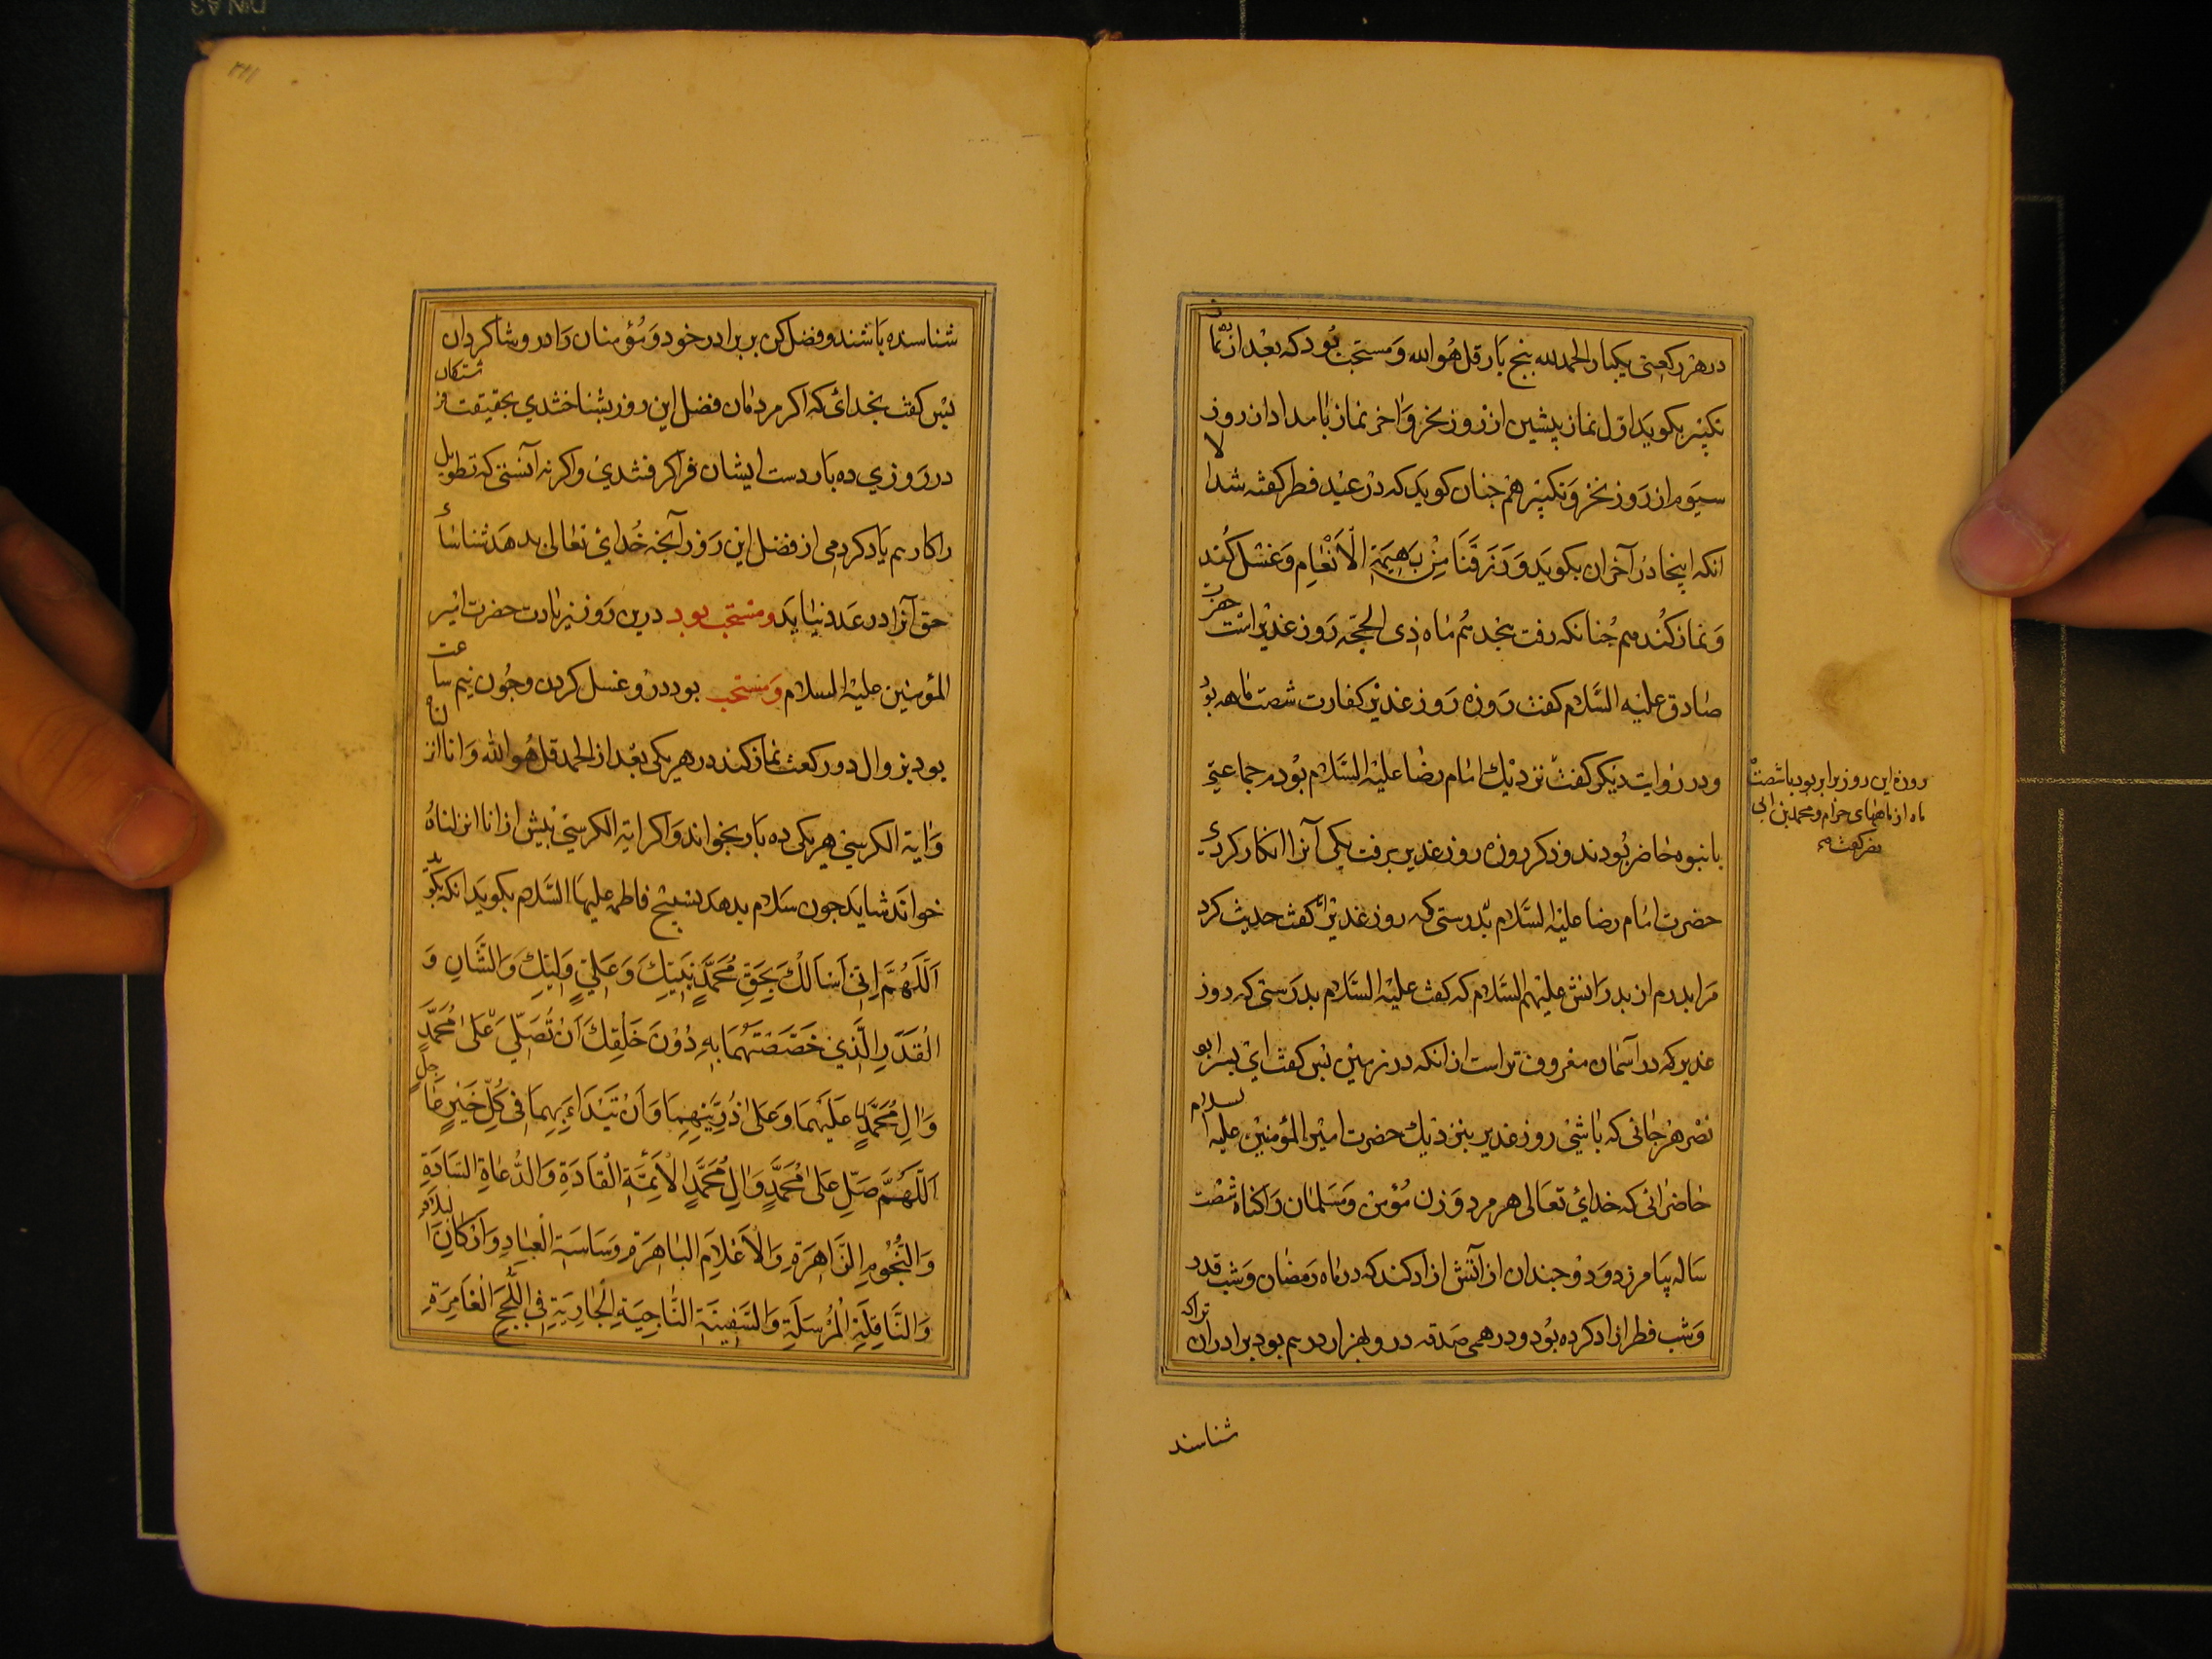 در هر رکعتی یکبار الحمدلله پنج بار قل هو الله و مستحب بود که بعد از نماز
تکبیر بکوید اول نماز پیشین از روز نحر و اخر نماز بامداد از روز
سیوم از روز نحر و تکبیر هم جنان کوید که در عید فطر کفته شد الا
انکه اینجا در آخر آن بکوید وَرَزَقَنَا مِنْ بَهِيمَةِ الْأَنْعَامِ و غسل کند
و نماز کند هم جنانکه رفت هجدهم ماه ذی الحجه روز غدیر است حضرت
صادق علیه السلام کفت روزه روز غدیر کفارت شصت ماهه بود
و در روایت دیکر کفت نزدیک امام رضا علیه السلام بودم جماعتی
بانبوه حاضر بودند و ذکر روزه روز غدیر برفت یکی آنرا انکار کردی
حضرت امام رضا علیه السلام بدرستی که روز غدیر را کفت حدیث کرد
مرا بدرم از بدرانش علیهم السلام که کفت علیه السلام بدرستی که روز
غدیر که در آسمان معروف تر است از انکه در زمین بس کفت ای بسر ابو
نصر هر جائی که باشی روز غدیر بنزدیک حضرت امیر المؤمنین علیه السلام
حاضر ائی که خدای تعالی هر مرد و زن مؤمن و مسلمان را کناه شصت
ساله بیامرزد و دو جندان از آتش ازاد کند که در ماه رمضان و شب قدر
و شب فطر ازاد کرده بود و درهمی صدقه در و بهزار درهم بود برادران تراکه
روزه این روز برابر بود با شصت
ماه از ماههای حرام و محمد بن ابی
نصر کفت
شناسند
۲۱۱
شناسنده باشند و فضل کن بر برادر خود و مؤمنان را درو شاکردان
بس کفت بخدائ که اکر مردمان فضل این روز بشناختندی بحقیقت فرشتکان
در روزی ده بار دست ایشان فرا کرفتندی و اکر نه آنستی که تطویل
را کارهم یاد کردمی از فضل این روز آنچه خدای تعالی بدهد شناسأ
حق آنرا در عدد نیاید و مستحب بود درین روز زیارت حضرت امیر
المؤمنین علیه السلام و مستحب بود درو غسل کردن و جون نیم ساعت
بود بزوال دو رکعت نماز کند در هر یکی بعد از الحمد قل هو الله و انا انزلناه
و اية الکرسی هر یکی ده بار بخواند و اکر اية الکرسی بیش از انا انزلناه
خواند شاید جون سلام بدهد تسبیح فاطمه علیها السلام بکوید انکه بکوید
اَللَّهُمَّ اِنِّي اَسْأَلُكَ بِحَقِّ مُحَمَّدٍ نَبِيِّكَ وَعَلِيٍّ وَلِيِّكَ وَالشَّانِ وَ
الْقَدَرِ الَّذِي خَصَّصْتَهُمَا بِهِ دُوْنَ خَلْقِكَ اَنْ تُصَلِّيَ عَلَى مُحَمَّدٍ
وَالِ مُحَمَّدٍ عَلَيْهِمَا وَعَلَى ذُرِّيَّتِهِمَا وَاَنْ تَبْدَاءَ بِهِمَا فِي كُلِّ خَيْرٍ عَاجِلٍ
اَللَّهُمَّ صَلِّ عَلَى مُحَمَّدٍ وَالِ مُحَمَّدٍ الْاَئِمَّةِ الْقَادَةِ وَالدُّعَاةِ السَّادَةِ
وَالنُّجُومِ الزَّاهِرَةِ وَالْاَعْلَامِ الْبَاهِرَةِ وَسَاسَةِ الْعِبَادِ وَاَرْكَانِ الْبِلَادِ
وَالنَّاقَةِ الْمُرْسَلَةِ وَالسَّفِينَةِ النَّاجِيَةِ الْجَارِيَةِ فِي اللُّجَجِ الْغَامِرَةِ